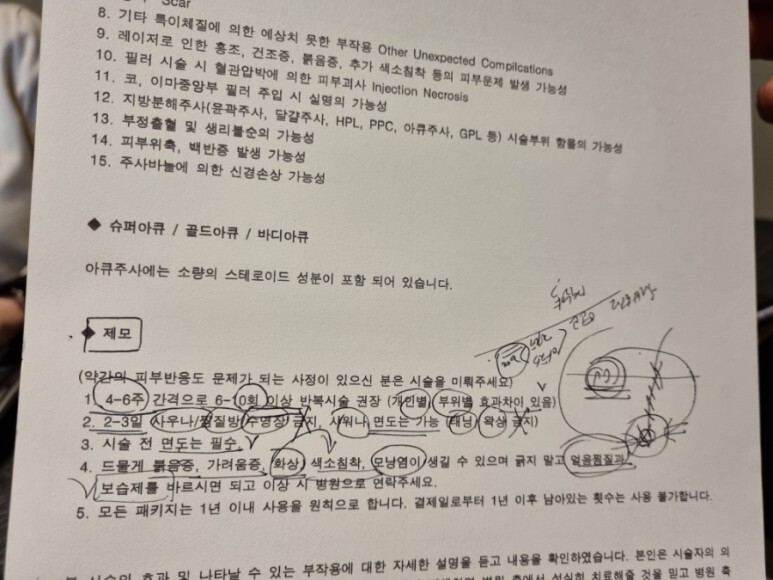 Scar
8. 기타 특이체질에 의한 예상치 못한 부작용 Other Unexpected Complications
9. 레이저로 인한 홍조, 건조증, 붉음증, 추가 색소침착 등의 피부문제 발생 가능성
10. 필러 시술 시 혈관압박에 의한 피부괴사 Injection Necrosis
11. 코, 이마중앙부 필러 주입 시 실명의 가능성
12. 지방분해주사(윤곽주사, 달걀주사, HPL, PPC, 아큐주사, GPL 등) 시술부위 함몰의 가능성
13. 부정출혈 및 생리불순의 가능성
14. 피부위축, 백반증 발생 가능성
15. 주사바늘에 의한 신경손상 가능성
◆ 슈퍼아큐 / 골드아큐 / 바디아큐
아큐주사에는 소량의 스테로이드 성분이 포함 되어 있습니다.
◆ 제모
(약간의 피부반응도 문제가 되는 사정이 있으신 분은 시술을 미뤄주세요)
1. 4-6주 간격으로 6-10회 이상 반복시술 권장 (개인별, 부위별 효과차이 있음)
2. 2-3일 사우나/찜질방/수영장 금지, 샤워나 면도는 가능 (태닝, 왁싱 금지)
3. 시술 전 면도는 필수
4. 드물게 붉음증, 가려움증, 화상, 색소침착, 모낭염이 생길 수 있으며 긁지 말고 얼음찜질과
보습제를 바르시면 되고 이상 시 병원으로 연락주세요.
5. 모든 패키지는 1년 이내 사용을 원칙으로 합니다. 결제일로부터 1년 이후 남아있는 횟수는 사용 불가합니다.
시술의 효과 및 나타날 수 있는 부작용에 대한 자세한 설명을 듣고 내용을 확인하였습니다. 본인은 시술자의 의
병원 측에서 성실히 치료해줄 것을 믿고 병원 측